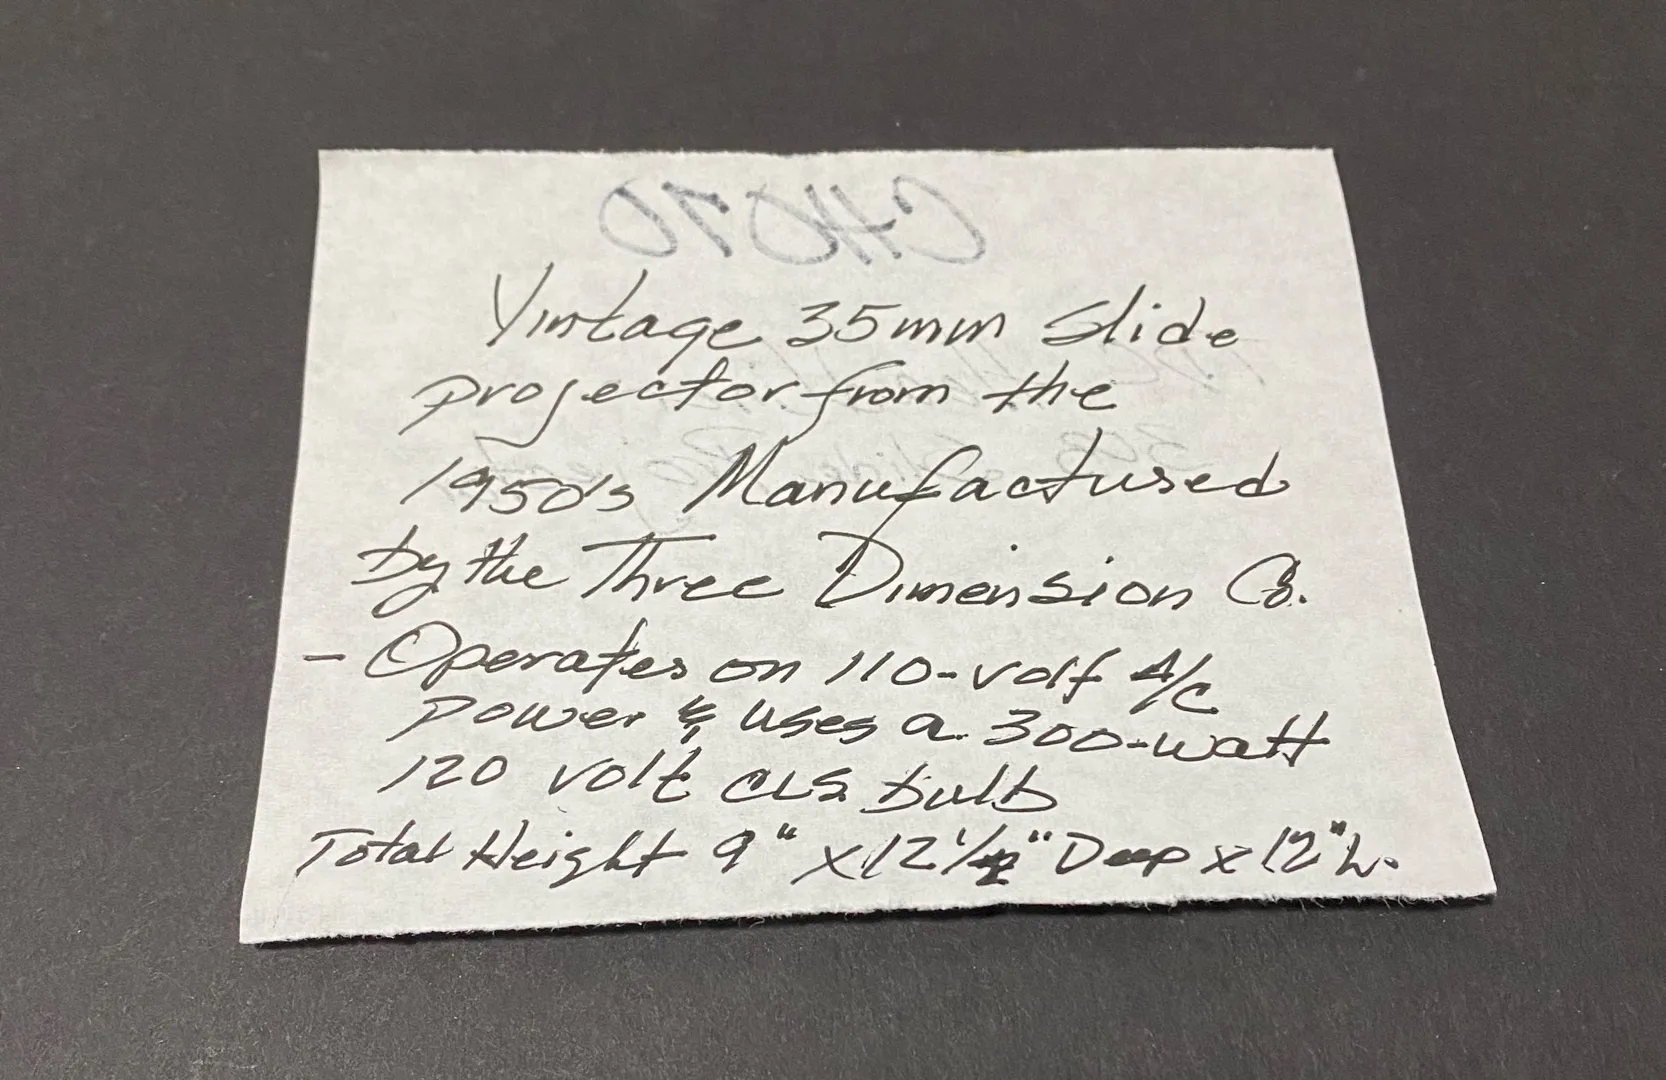 CH070
Vintage 35mm Slide
projector from the
1950's Manufactured
by the Three Dimension Co.
- Operates on 110-volt A/C
power & uses a 300-watt
120 volt CLS bulb
Total Height 9" x 12 1/2" Deep x 12" L.